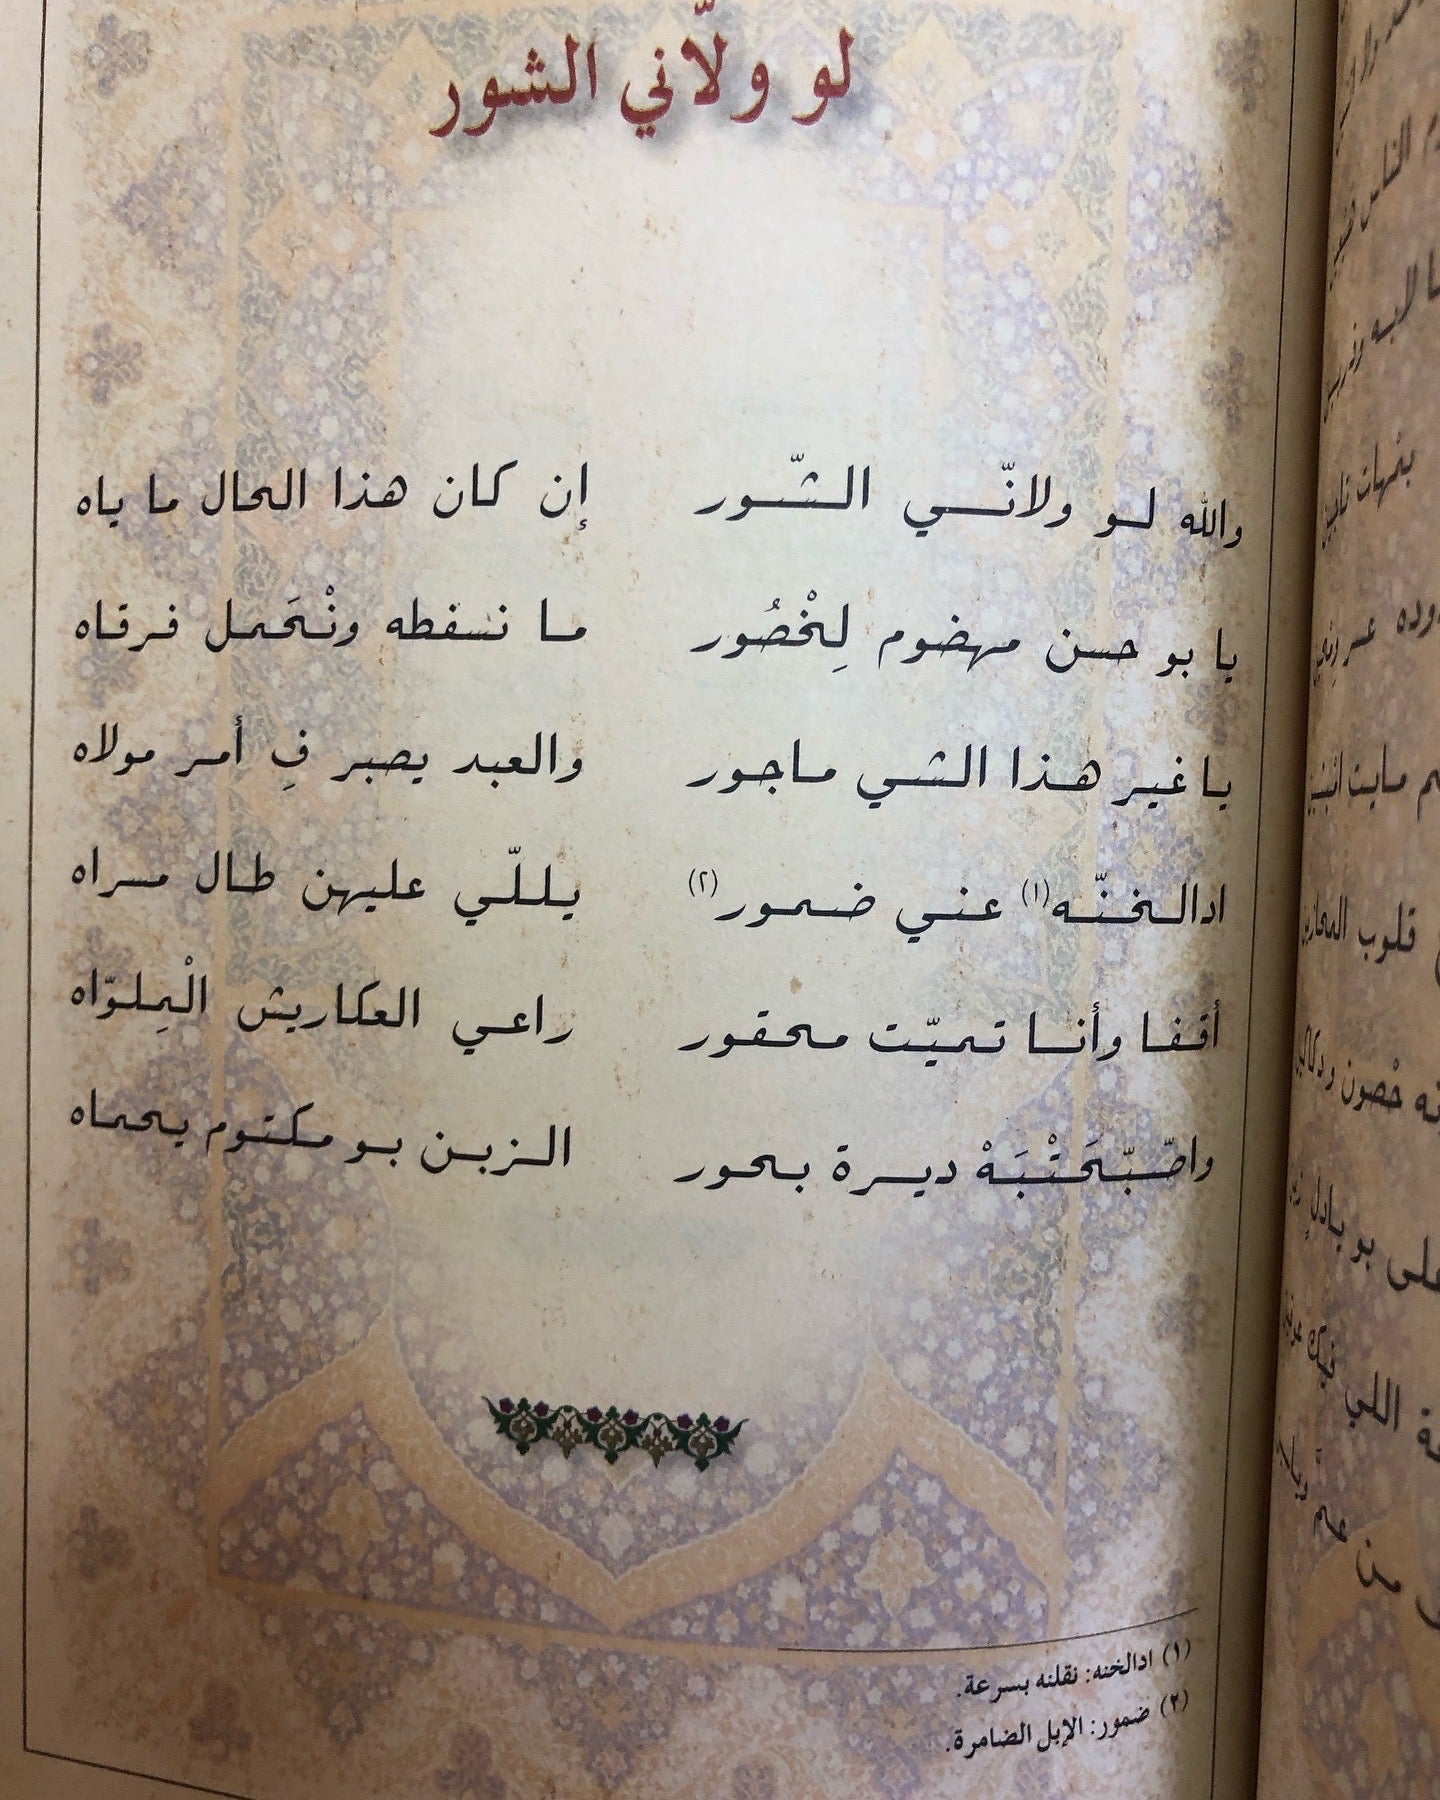 لو ولاّني الشور
والله لو ولانّي الشّور إن كان هذا الحال ما ياه
يا بو حسن مهضوم لِخْصُور ما نسفطه ونْحَمل فرقاه
يا غير هذا الشي ماجور والعبد يصبر فِ أمر مولاه
ادالخنّه(١) عني ضمور(٢) يللّي عليهن طال مسراه
أقفا وأنا تميّت محقور راعي العكاريش الْمِلوّاه
واصّبّحَتْبَهْ ديرة بحور الزبن بو مكتوم يحماه
(١) ادالخنه: نقلنه بسرعة.
(٢) ضمور: الإبل الضامرة.
قلوب المحازين